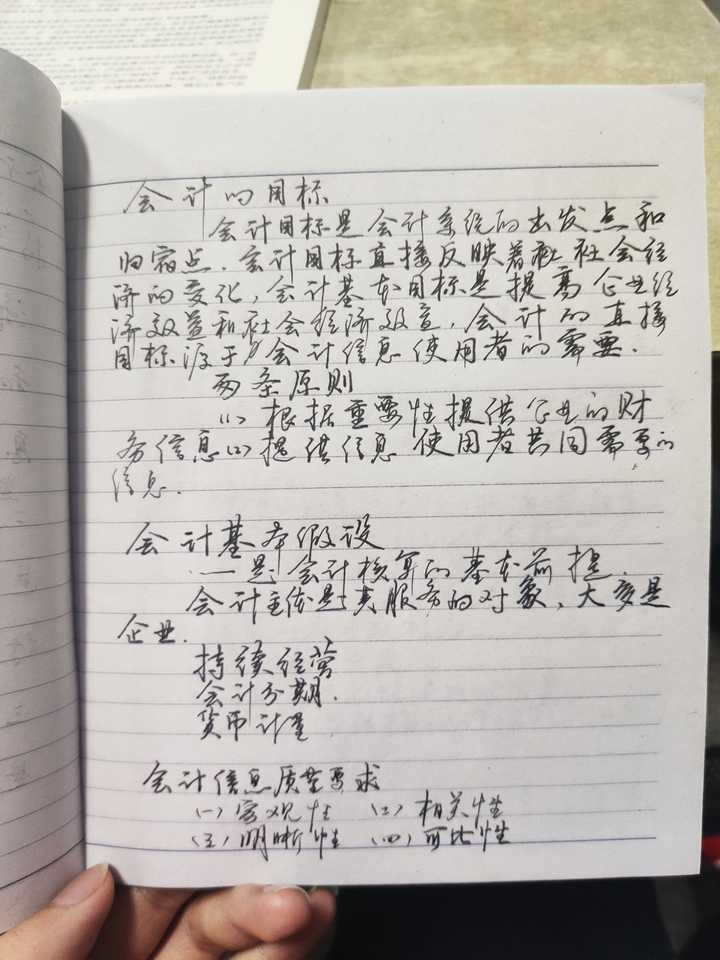 会计的目标
会计目标是会计系统的出发点和
归宿点.会计目标直接反映着社社会经
济的变化,会计基本目标是提高企业经
济效益和社会经济效益,会计的直接
目标源于会计信息使用者的需要.
两条原则
(1)根据重要性提供企业的财
务信息(2)提供信息使用者共同需要的
信息.
会计基本假设
——是会计核算的基本前提.
会计主体是其服务的对象,大多是
企业.
持续经营
会计分期.
货币计量
会计信息质量要求
(一)客观性 (二)相关性
(三)明晰性 (四)可比性